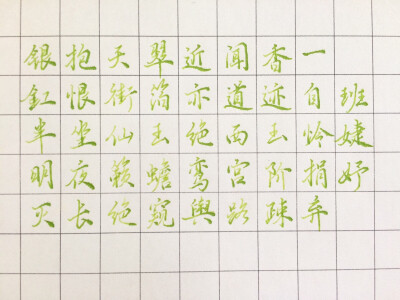 班婕妤
一自怜捐弃
香迹玉阶疎
闻道西宫路
近亦绝鸾舆
翠箔玉蟾窥
天街仙籁绝
抱恨坐夜长
银釭半明灭